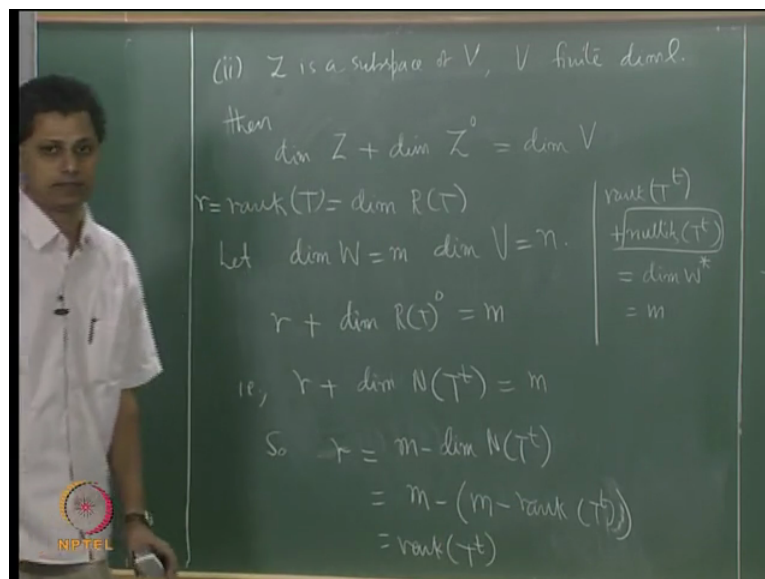 (ii) Z is a subspace of V, V finite diml.
then
dim Z + dim Z⁰ = dim V
r = rank(T) = dim R(T)
Let dim W = m dim V = n.
r + dim R(T)⁰ = m
ie, r + dim N(Tᵗ) = m
So r = m - dim N(Tᵗ)
= m - (m - rank (Tᵗ))
= rank(Tᵗ)
rank(Tᵗ)
+ nullity(Tᵗ)
= dim W*
= m
NPTEL